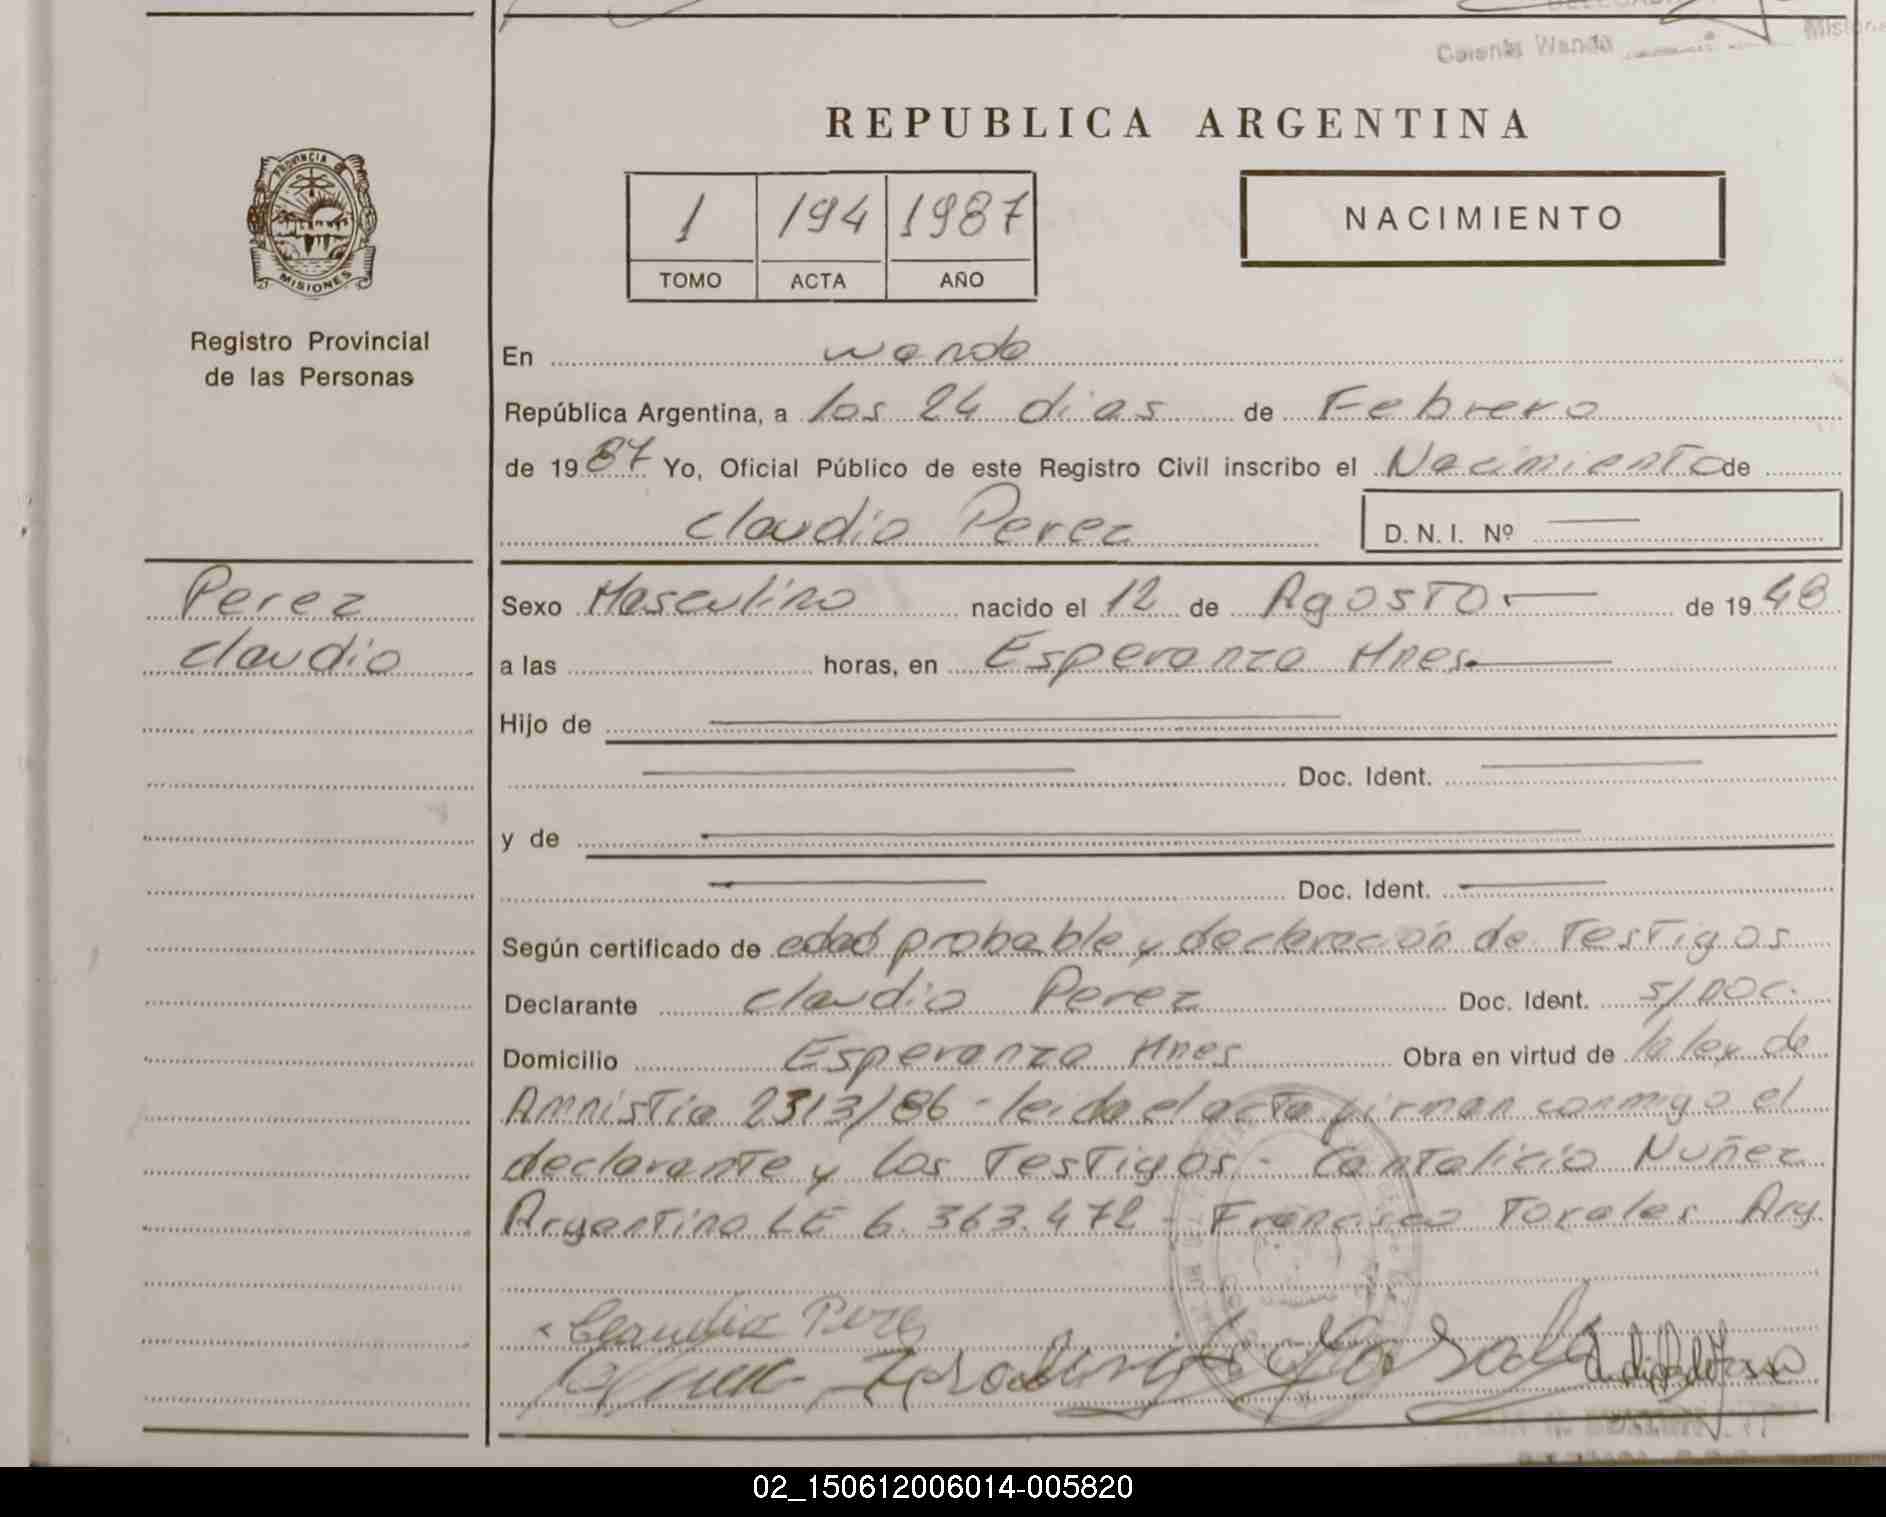 Colonia Wanda
REPUBLICA ARGENTINA
PROVINCIA DE
MISIONES
1 194 1987
TOMO ACTA AÑO
NACIMIENTO
Registro Provincial
de las Personas
En Wanda
República Argentina, a los 24 dias de Febrero
de 1987 Yo, Oficial Público de este Registro Civil inscribo el Nacimiento de
Claudio Perez D.N.I. Nº
Perez
Claudio
Sexo Masculino nacido el 12 de Agosto de 1948
a las horas, en Esperanza Mnes
Hijo de
Doc. Ident.
y de
Doc. Ident.
Según certificado de edad probable y declaración de Testigos
Declarante Claudio Perez Doc. Ident. s/Doc.
Domicilio Esperanza Mnes Obra en virtud de la ley de
Amnistia 2313/86 - leida el acta firman conmigo el
declarante y los Testigos - Cantalicio Nuñez
Argentino LE 6.363.472 - Francisco Torales Arg.
Claudio Perez
02_150612006014-005820